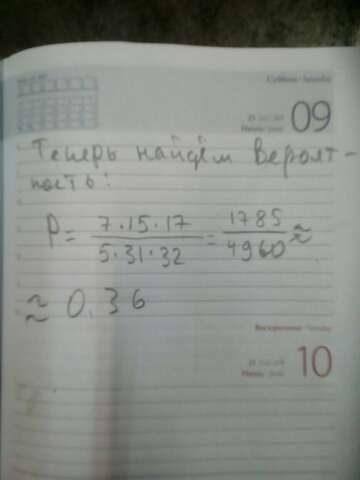 Суббота
09
Теперь найдём вероят-
ность:
P = 7·15·17 / 5·31·32 = 1785 / 4960 ≈
≈ 0.36
Воскресенье
10